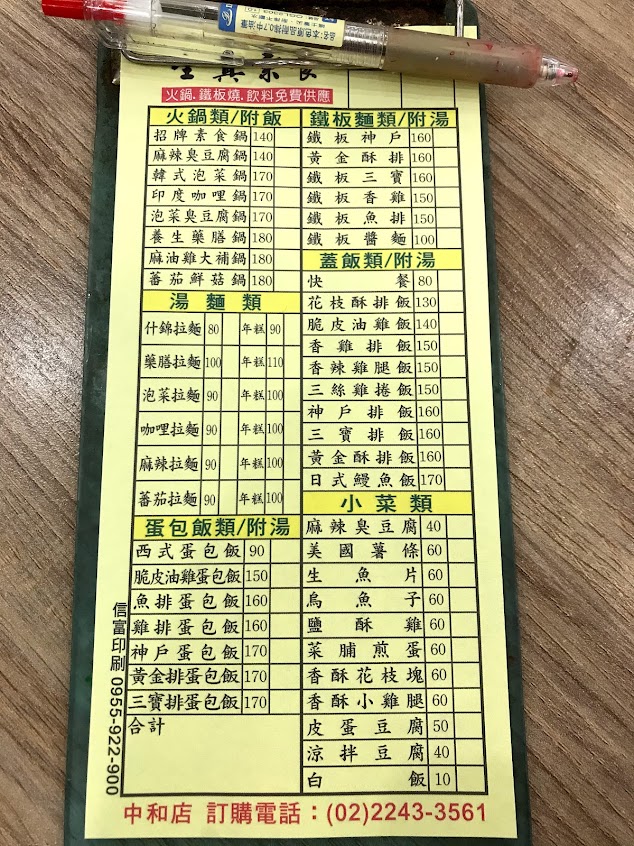 火鍋.鐵板燒.飲料免費供應
火鍋類/附飯
招牌素食鍋 140
麻辣臭豆腐鍋 140
韓式泡菜鍋 170
印度咖哩鍋 170
泡菜臭豆腐鍋 170
養生藥膳鍋 180
麻油雞大補鍋 180
蕃茄鮮菇鍋 180
湯麵類
什錦拉麵 80 年糕 90
藥膳拉麵 100 年糕 110
泡菜拉麵 90 年糕 100
咖哩拉麵 90 年糕 100
麻辣拉麵 90 年糕 100
蕃茄拉麵 90 年糕 100
蛋包飯類/附湯
西式蛋包飯 90
脆皮油雞蛋包飯 150
魚排蛋包飯 160
雞排蛋包飯 160
神戶蛋包飯 170
黃金排蛋包飯 170
三寶排蛋包飯 170
合計
鐵板麵類/附湯
鐵板神戶 160
黃金酥排 160
鐵板三寶 160
鐵板香雞 150
鐵板魚排 150
鐵板醬麵 100
蓋飯類/附湯
快餐 80
花枝酥排飯 130
脆皮油雞飯 140
香雞排飯 150
香辣雞腿飯 150
三絲雞捲飯 150
神戶排飯 160
三寶排飯 160
黃金酥排飯 160
日式鰻魚飯 170
小菜類
麻辣臭豆腐 40
美國薯條 60
生魚片 60
烏魚子 60
鹽酥雞 60
菜脯煎蛋 60
香酥花枝塊 60
香酥小雞腿 60
皮蛋豆腐 50
涼拌豆腐 40
白飯 10
信富印刷 0955-922-900
中和店 訂購電話：(02)2243-3561